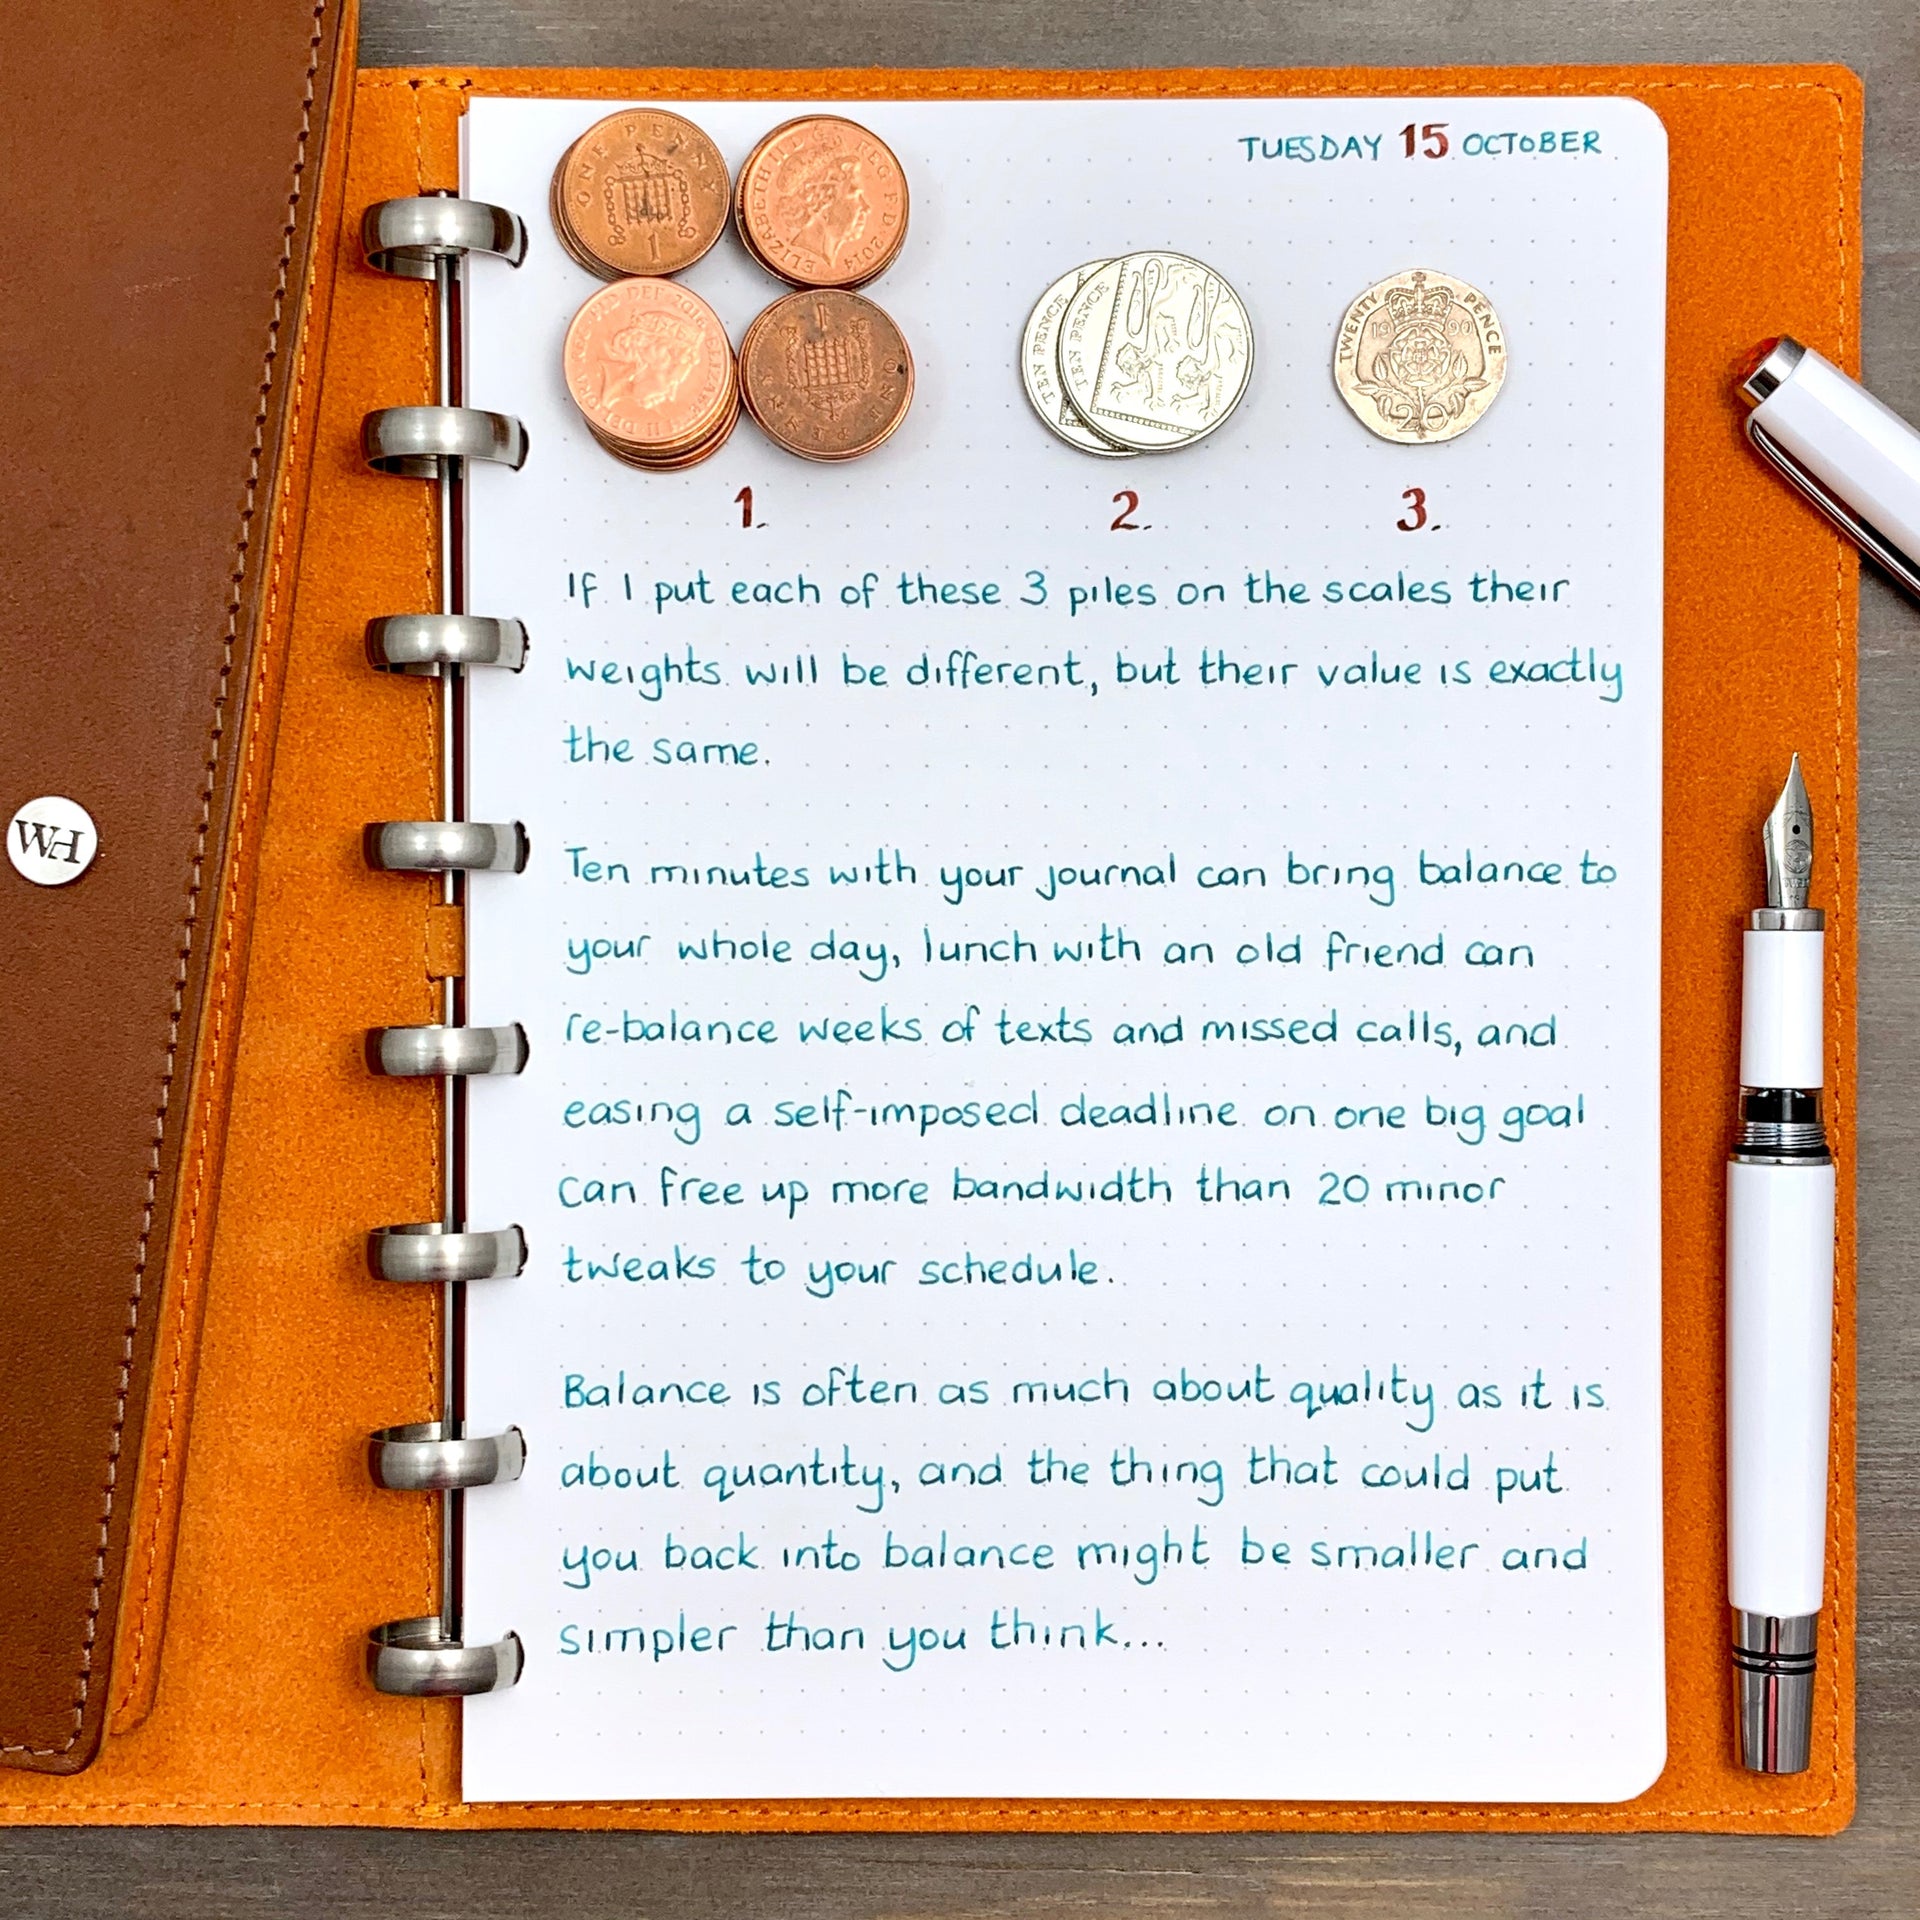 TUESDAY 15 OCTOBER
ONE PENNY
1
ELIZABETH II D G REG F D 2014
TEN PENCE
TEN PENCE
TWENTY PENCE
1990
20
1
ONE PENNY
1. 2. 3.
If I put each of these 3 piles on the scales their
weights will be different, but their value is exactly
the same.
Ten minutes with your journal can bring balance to
your whole day, lunch with an old friend can
re-balance weeks of texts and missed calls, and
easing a self-imposed deadline on one big goal
can free up more bandwidth than 20 minor
tweaks to your schedule.
Balance is often as much about quality as it is
about quantity, and the thing that could put
you back into balance might be smaller and
simpler than you think...
WH